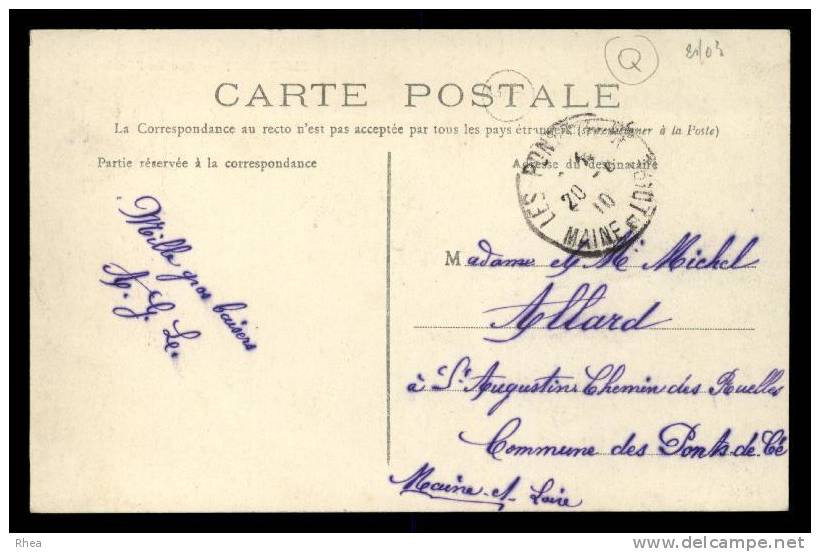 Q
CARTE POSTALE
La Correspondance au recto n'est pas acceptée par tous les pays étrangers (se renseigner à la Poste)
Partie réservée à la correspondance
Adresse du destinataire
LES PONTS
20 10
MAINE
Mille gros baisers
A. G. Le.
Madame et M. Michel
Allard
à St Augustin Chemin des Ruelles
Commune des Ponts-de-Cé
Maine-et-Loire
Rhea
www.delcampe.net